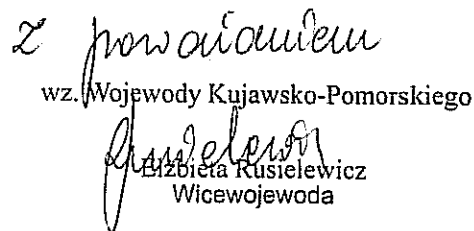 z poważaniem
wz. Wojewody Kujawsko-Pomorskiego
Elżbieta Rusielewicz
Wicewojewoda